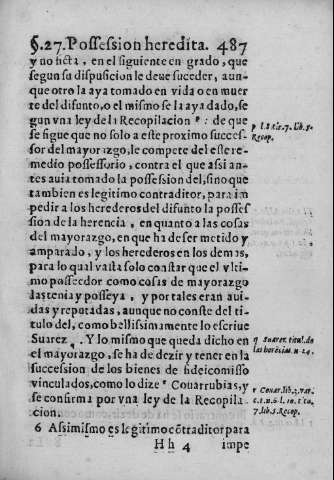 §.27. Possession heredita. 487
y no ficta, en el siguiente en grado, que
segun su dispusicion le deue suceder, aun-
que otro la aya tomado en vida o en muer
te del difunto, o el mismo se la aya dado, se
gun vna ley de la Recopilacion ᵖ: de que
se sigue que no solo a este proximo succes-
sor del mayorazgo, le compete del este re-
medio possessorio, contra el que assi an-
tes auia tomado la possession del, sino que
tambien es legitimo contraditor, para im
pedir a los herederos del difunto la posses
sion de la herencia, en quanto a las cosas
del mayorazgo, en que ha de ser metido y
amparado, y los herederos en los demas,
para lo qual vasta solo constar que el vlti-
mo possedor como cosas de mayorazgo
las tenia y posseya, y por tales eran aui-
das y reputadas, aunque no conste del ti-
tulo del, como bellissimamente lo escriue
Suarez q. Y lo mismo que queda dicho en
el mayorazgo, se ha de dezir y tener en la
succession de los bienes de fideicomisso
vinculados, como lo dize ʳ Couarrubias, y
se confirma por vna ley de la Recopila-
cion.
6 Assimismo es legitimo cõtraditor para
Hh 4 impe
p l. 8. tit. 7. lib. 5.
Recop.
q Suarez. titul. de
las herécias. n. 24.
r Couar. lib. 3. var.
c. 5. n. 6. l. 10. titu.
7. lib. 5. Recop.